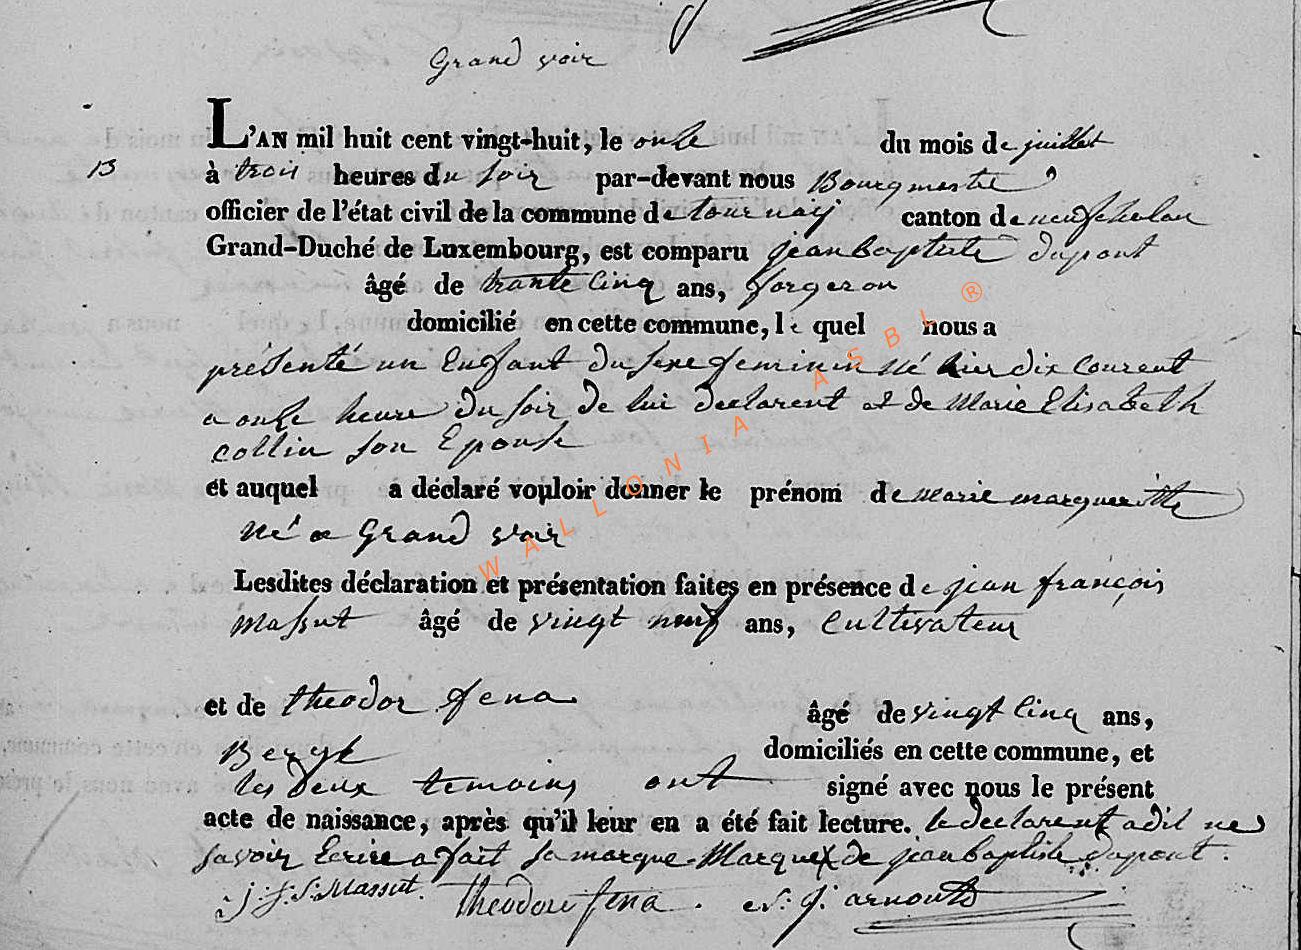 Grand voir
L'AN mil huit cent vingt-huit, le onse du mois de juillet
13
à trois heures du soir par-devant nous Bourgmestre
officier de l'état civil de la commune de tournay canton de neufchateau
Grand-Duché de Luxembourg, est comparu jean baptiste dupont
âgé de trante cinq ans, forgeron
domicilié en cette commune, le quel nous a
présenté un Enfant du sexe feminin né hier dix courent
a onse heure du soir de lui declarent et de Marie Elisabeth
collin son Epouse
et auquel a déclaré vouloir donner le prénom de marie margueritte
né a Grand voir
Lesdites déclaration et présentation faites en présence de jean françois
massut âgé de vingt neuf ans, Cultivateur
et de theodor fena âgé de vingt cinq ans,
domiciliés en cette commune, et
les deux temoins ont signé avec nous le présent
acte de naissance, après qu'il leur en a été fait lecture. le declarent a dil ne
savoir Ecrire a fait sa marque. Marque X de jean baptiste dupont.
J. f. Massut. theodore fena. j. arnould
WALLONIA ASBL ®